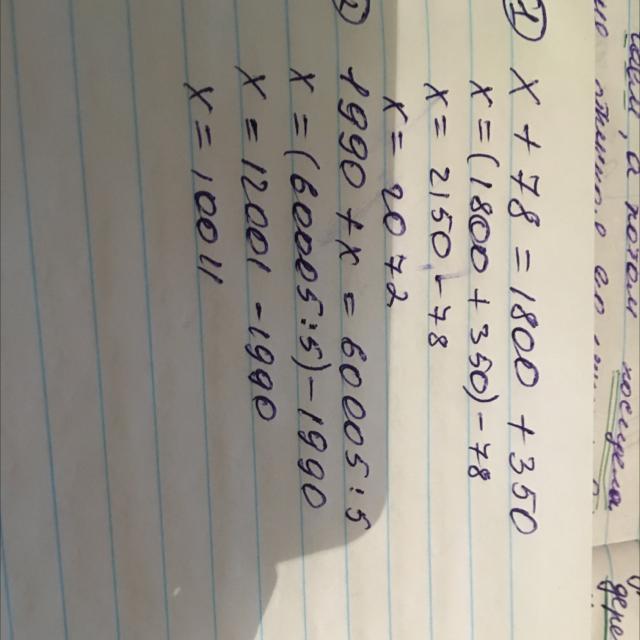 ① x + 78 = 1800 + 350
x = (1800 + 350) - 78
x = 2150 - 78
x = 2072
② 1990 + x = 60005 : 5
x = (60005 : 5) - 1990
x = 12001 - 1990
x = 10011